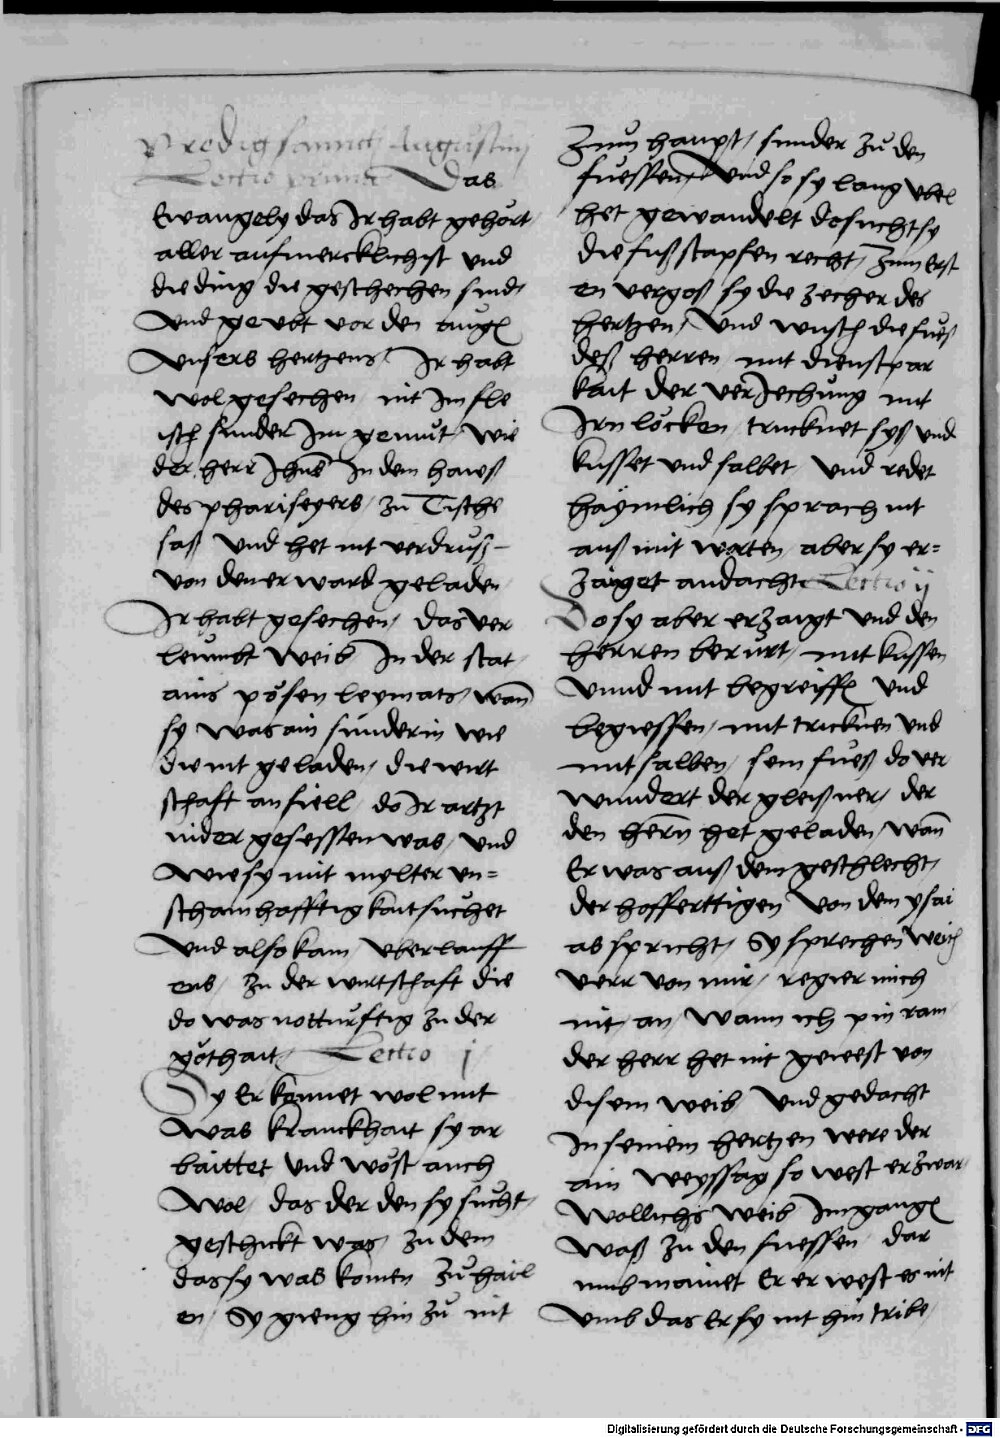 Predig sannct Augustini
Lectio prima Das
Ewangely das Jr habt gehört
aller aufmercklichist vnd
die ding die geschechen sind
Vnd geubt vor den aug
Vnsers hertzens Jr habt
wol gesechen nit Jm fle
isch sunder Jm gemut wie
der herr Jhus Jn dem hawß
des phariseyers zu Tische
saß Vnd het nit verdruß
von dem er ward geladen
Jr habt gesechen das ver
leumbt weib Jn der stat
ains pösen leymats wan
sy was ain sünderin wie
die nit geladen die wirt
schaft anfiell do Jr artzt
nider gesessen was vnd
wie sy mit mylter vn=
schamhafftigkait suchet
Vnd also kam vberlauff
ens zu der wirtschaft die
do was notturftig zu der
göthait Lectio j
Sy Erkennet wol mit
was kranckhait sy ar
baittet Vnd wöst auch
wol das der den sy sucht
geschickt was zu dem
das sy was komen zu hail
en Sy gieng hin zu nit
Zum haupt sunder zu den
fuessen Vnd so sy lang vbel
het gewandelt do sucht sy
die fußstapfen recht Zum Erst
en vergoß sy die zecher des
hertzen Vnd wusch die füeß
deß herren mit dienstpar
kait der verJechung mit
Jrn locken trucknet syß vnd
kusset vnd salbet Vnd redet
haymlich sy sprach nit
auß mit worten aber sy er=
zaiget andacht Lectio ij
Do sy aber erzaigt vnd den
herren berürt mit kussen
Vnnd mit begreiff Vnd
begiessen mit tricknen vnd
mit salben sein füeß do ver
wundert der gleißner der
den hern het geladen wan
Er was auß dem geschlecht
der hofferttigen Von dem ysai
as spricht Sy sprechen weich
verr von mir regier mich
nit an Wann ich pin rain
der herr het nit gewest von
disem weib Vnd gedacht
Jn seinem hertzen were der
ain weyssag so west er zwar
Wollichs weib Jm gang
Waß zu den fuessen dar
umb mainet Er er west es nit
Vmb das Er sy nit hin tribe
Digitalisierung gefördert durch die Deutsche Forschungsgemeinschaft - DFG